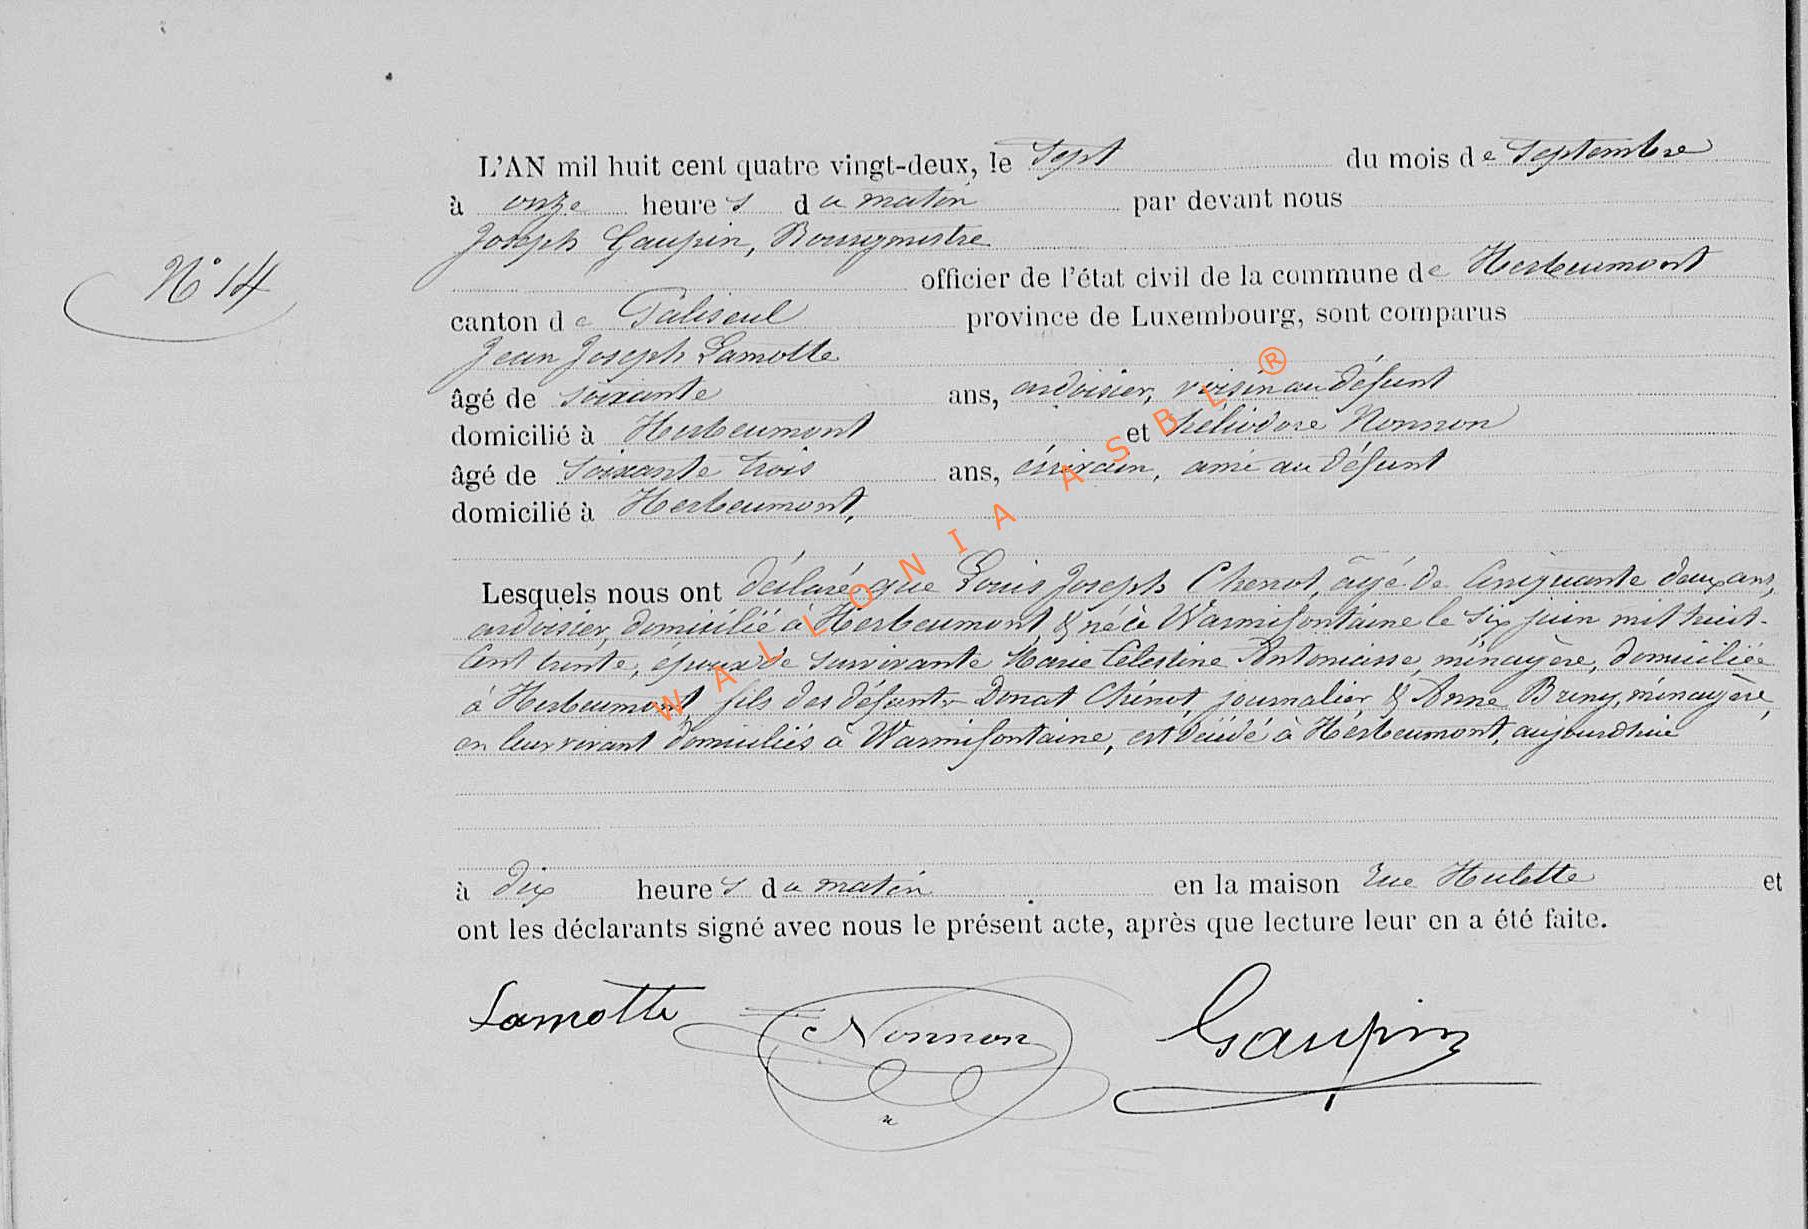 L'AN mil huit cent quatre vingt-deux, le Sept du mois de Septembre
à onze heures du matin par devant nous
Joseph Gaupin, Bourgmestre
officier de l'état civil de la commune de Herbeumont
N° 14
canton de Paliseul province de Luxembourg, sont comparus
Jean Joseph Lamotte
âgé de soixante ans, ardoisier, voisin au défunt
domicilié à Herbeumont et héliodore Nonnon
âgé de soixante trois ans, écrivain, ami au défunt
domicilié à Herbeumont,
Lesquels nous ont déclaré que Louis Joseph Chenot, âgé de Cinquante deux ans,
ardoisier, domicilié à Herbeumont, & né à Warmifontaine le six juin mil huit-
Cent trente, époux de survivante Marie Célestine Antoniasse, ménagère, domiciliée
à Herbeumont, fils des défunts Donat Chénot, journalier & Anne Briny, ménagère,
en leur vivant domiciliés à Warmifontaine, est décédé à Herbeumont, aujourd'hui
à dix heures du matin en la maison rue Hulette et
ont les déclarants signé avec nous le présent acte, après que lecture leur en a été faite.
Lamotte Nonnon Gaupin
WALLONIA ASBL ®